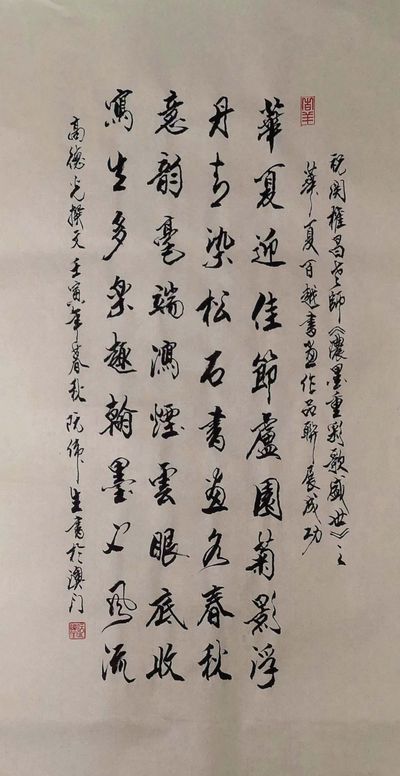 祝関權昌老師《濃墨重彩歌盛世》之
華夏百越書畫作品聯展成功
華夏迎佳節盧園菊影浮
丹青染松石書畫名春秋
意韻毫端瀉煙雲眼底收
寫生多樂趣翰墨亦風流
高德光撰文壬寅年暮秋阮偉生書於澳门